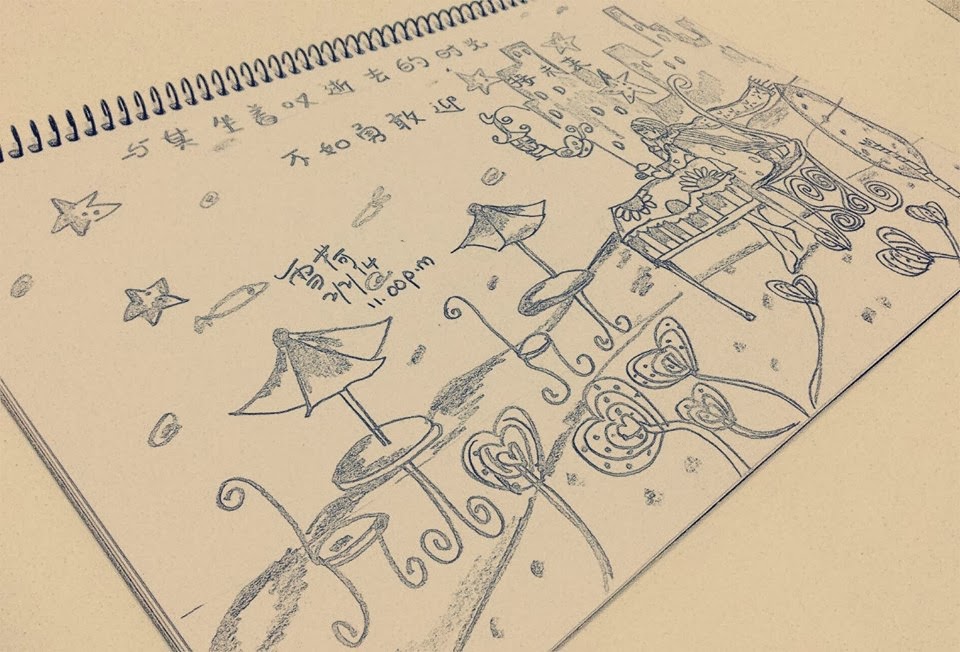 与其坐着叹逝去的时光
不如勇敢迎接未来
雪荷
2/2/14
@
11.00p.m